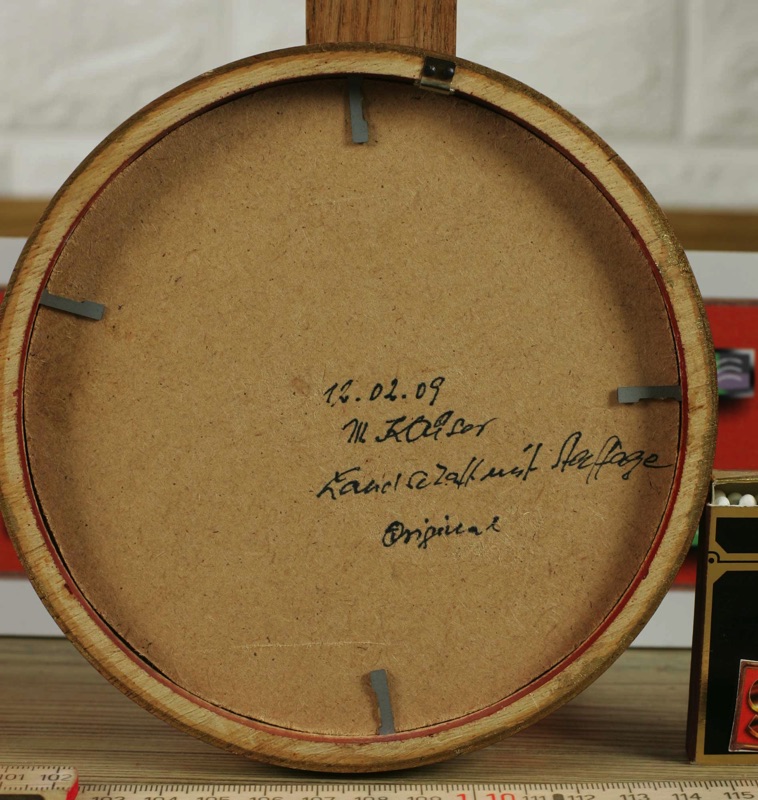 12.02.09
M Kaiser
Landschaft mit Staffage
Original
101 102
103 104 105 106 107 108 109 110 111 112 113 114 115